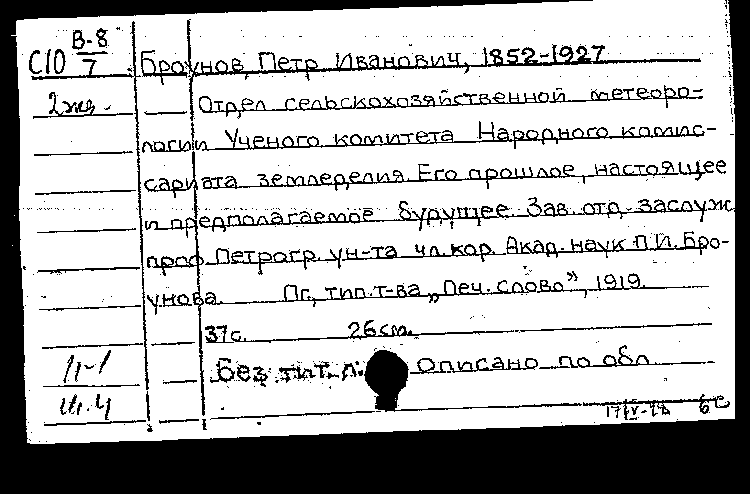 В-8
С10 7 Броунов, Петр Иванович, 1852-1927
2 экз. Отдел сельскохозяйственной метеоро-
логии Ученого комитета Народного комис-
сариата земледелия. Его прошлое, настоящее
и предполагаемое будущее. Зав. отд. заслуж.
проф. Петрогр. ун-та чл. кор. Акад. наук П.И. Бро-
унова. Пг., тип. т-ва „Печ. слово", 1919.
37 с. 26 см.
Без тит. л. Описано по обл.